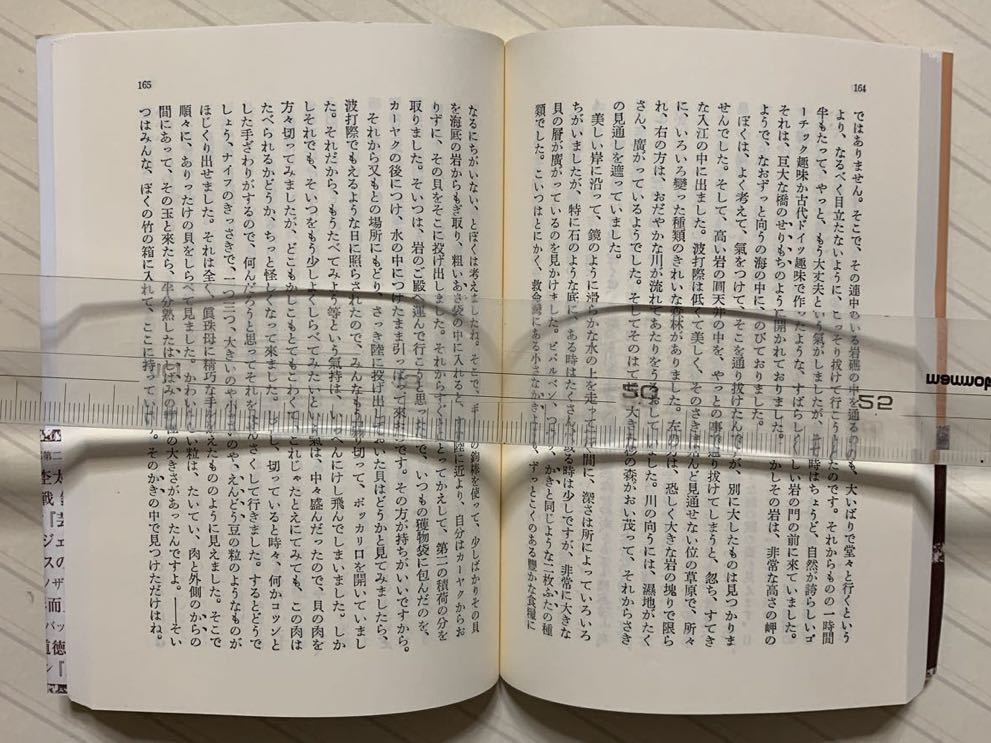 164
ではありません。そこで、その連中のいる岩礁の前を通るのも、大いばりで堂々と行くという
より、なるべく目立たないように、こっそり拔けて行こうとしたのです。それからものの一時間
半もたって、やっと、もう大丈夫という氣がしましたが、その時はちょうど、自然が誇らしいゴ
ーチック趣味か古代ドイツ趣味で作ったような、すばらしく美しい岩の門の前に來ていました。
それは、巨大な橋のせりもちのように開かれておりました。しかしその岩は、非常な高さの岬の
ようで、なおずっと向うの海の中に、のびておりました。
ぼくは、よく考えて、氣をつけて、そこを通り拔けたんですが、別に大したものは見つかりま
せんでした。そして、高い岩の圓天井の中を、やっとの事で通り拔けてしまうと、忽ち、すてき
な入江の中に出ました。波打際は低くて美しく、そのさきは殆んど見通せない位の草原で、所々
に、いろいろ變った種類のきれいな森林がありました。左の方は、恐しく大きな岩の塊りで限ら
れ、右の方は、おだやかな川が流れてあたりをうるおしていました。川の向うには、濕地がたく
さん、廣がっているようでした。そしてそのはてに、大きな の森がおい茂って、それからさき
の見通しを遮っていました。
美しい岸に沿って、鏡のように滑らかな水の上を走っている間に、深さは所によっていろいろ
ちがいましたが、特に石のような底に、ある時はたくさん、或る時は少しですが、非常に大きな
貝の層が横たわっているのを見かけました。ビバルベン、つまり、かきと同じような二枚ぶたの種
類でした。こいつはとにかく、救命灣にある小さなかきよりも、ずっとこくのある豐かな食糧に
165
なるにちがいない、とぼくは考えましたね。そこで、 の鉤棒を使って、少しばかりその貝
を海底の岩からもぎ取り、粗いあさ袋の中に入れると、 陸に近より、自分はカーヤクからお
りずに、その貝をそこに投げ出しました。それからすぐ とってかえして、第二の積荷の分を
取りました。そいつは、岩のご殿へ運んで行こうと思ったので、いつもの獲物袋に包んだのを、
カーヤクの後につけ、水の中につけたまま引っぱって來たのです。その方が持ちがいいですから。
それから又もとの場所にもどり、さっき陸に投げ出しておいた貝はどうかと見てみましたら、
波打際でもえるような日に照らされたので、みんなもう參り切って、ポッカリ口を開いていまし
た。それだから、もうたべてみよう等という氣持は、いっぺんにけし飛んでしまいました。しか
しそれでも、そいつをもう少しよくしらべてみたいという氣は、中々盛んだったので、貝の肉を
方々切ってみましたが、どこもかしこもとてもこわくて、これじゃたとえてみても、この肉は
たべられるかどうか、ちっと怪しくなって來ました。しかし、切っていると時々、何かコツンと
した手ざわりがするので、何んだろうと思ってそれをたんさくして行きました。するとどうで
しょう、ナイフのきっさきで、一つ三つ、大きいのや小 のや、えんどう豆の粒のようなものが
ほじくり出せました。それは全く、眞珠母に精巧な手 えたもののように見えました。そこで
順々に、ありったけの貝をしらべて見ました。かわいい粒は、たいてい、肉と外側のからの
間にあって、その玉と來たら、半分熟したはしばみの の大きさがあったんですよ。――そい
つはみんな、ぼくの竹の箱に入れて、ここに持って 。そのかきの中で見つけただけはね。
50
52